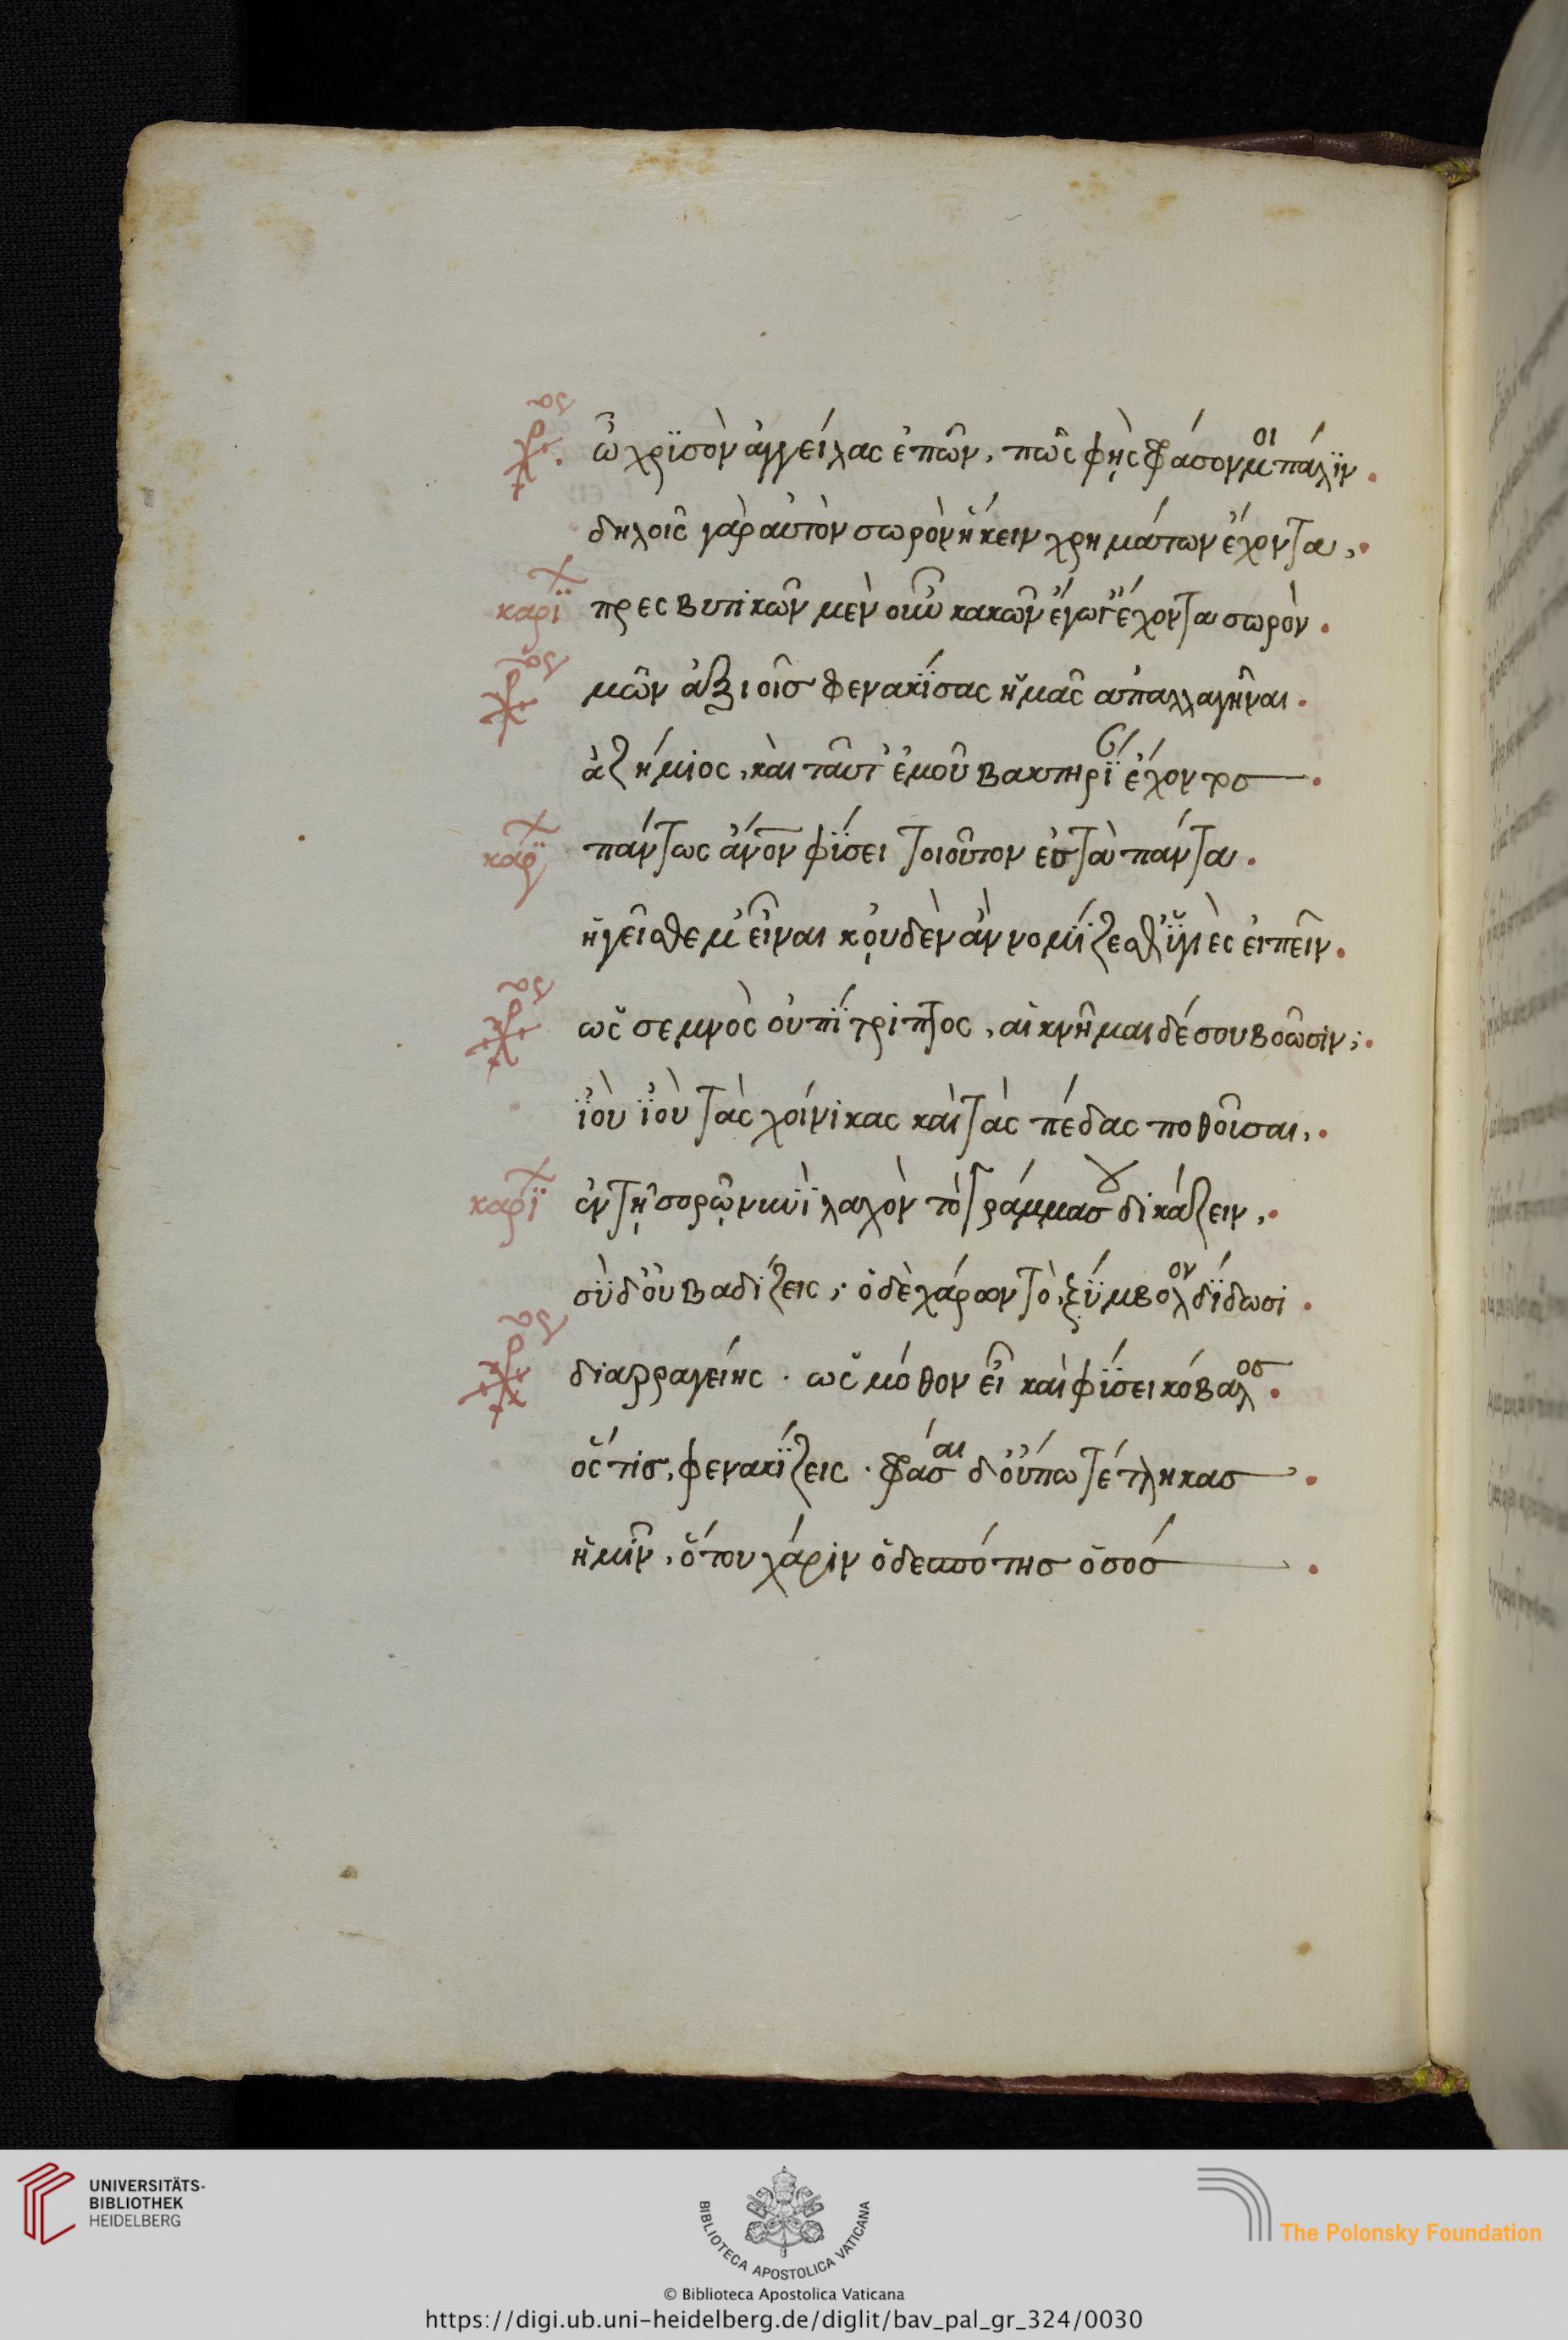 χο. ὦ χρϋσὸν ἀγγείλας ἐπῶν, πῶς φῂς φράσον μοι πάλϊν.
δηλοῖς γὰρ αὐτὸν σωρὸν ἥκειν χρημάτων ἔχοντα,.
καρϊ πρεσβυτικῶν μὲν οὖν κακῶν ἔγωγ' ἔχοντα σωρὸν.
μῶν ἀξιοῖς φενακΐσας ἡμᾶς ἀπαλλαγῆναι.
ἀζήμιος, καὶ ταῦτ' ἐμοῦ βακτηρΐαν ἔχοντος.
καρϊ πάντως ἄνον φΰσει τοιοῦτον ἐς τὰ πάντα.
ἡγεῖσθε μ' εἶναι κοὐδὲν ἂν νομΐζεσθ' ὑγιὲς εἰπεῖν.
ὡς σεμνὸς οὑπΐτριπτος, αἱ κνῆμαι δέ σου βοῶσιν;.
ἰοὺ ἰοὺ τὰς χοίνικας καὶ τὰς πέδας ποθοῦσαι,.
καρϊ ἐν τῇ σορῷ νυνϊ λαχὸν τὸ γράμμα σου δικάζειν,.
σὺ δ' οὐ βαδίζεις; ὁ δὲ χάρων τὸ ξύμβολον δΐδωσι.
διαρραγείης. ὡς μόθον εἶ καὶ φΰσει κόβαλος.
ὅς τις, φενακΐζεις. φράσαι δ' οὔπω τέτληκας.
ἡμῖν, ὅτου χάριν ὁ δεσπότης ὁ σός.
UNIVERSITÄTS-
BIBLIOTHEK
HEIDELBERG
BIBLIOTECA APOSTOLICA VATICANA
The Polonsky Foundation
© Biblioteca Apostolica Vaticana
https://digi.ub.uni-heidelberg.de/diglit/bav_pal_gr_324/0030